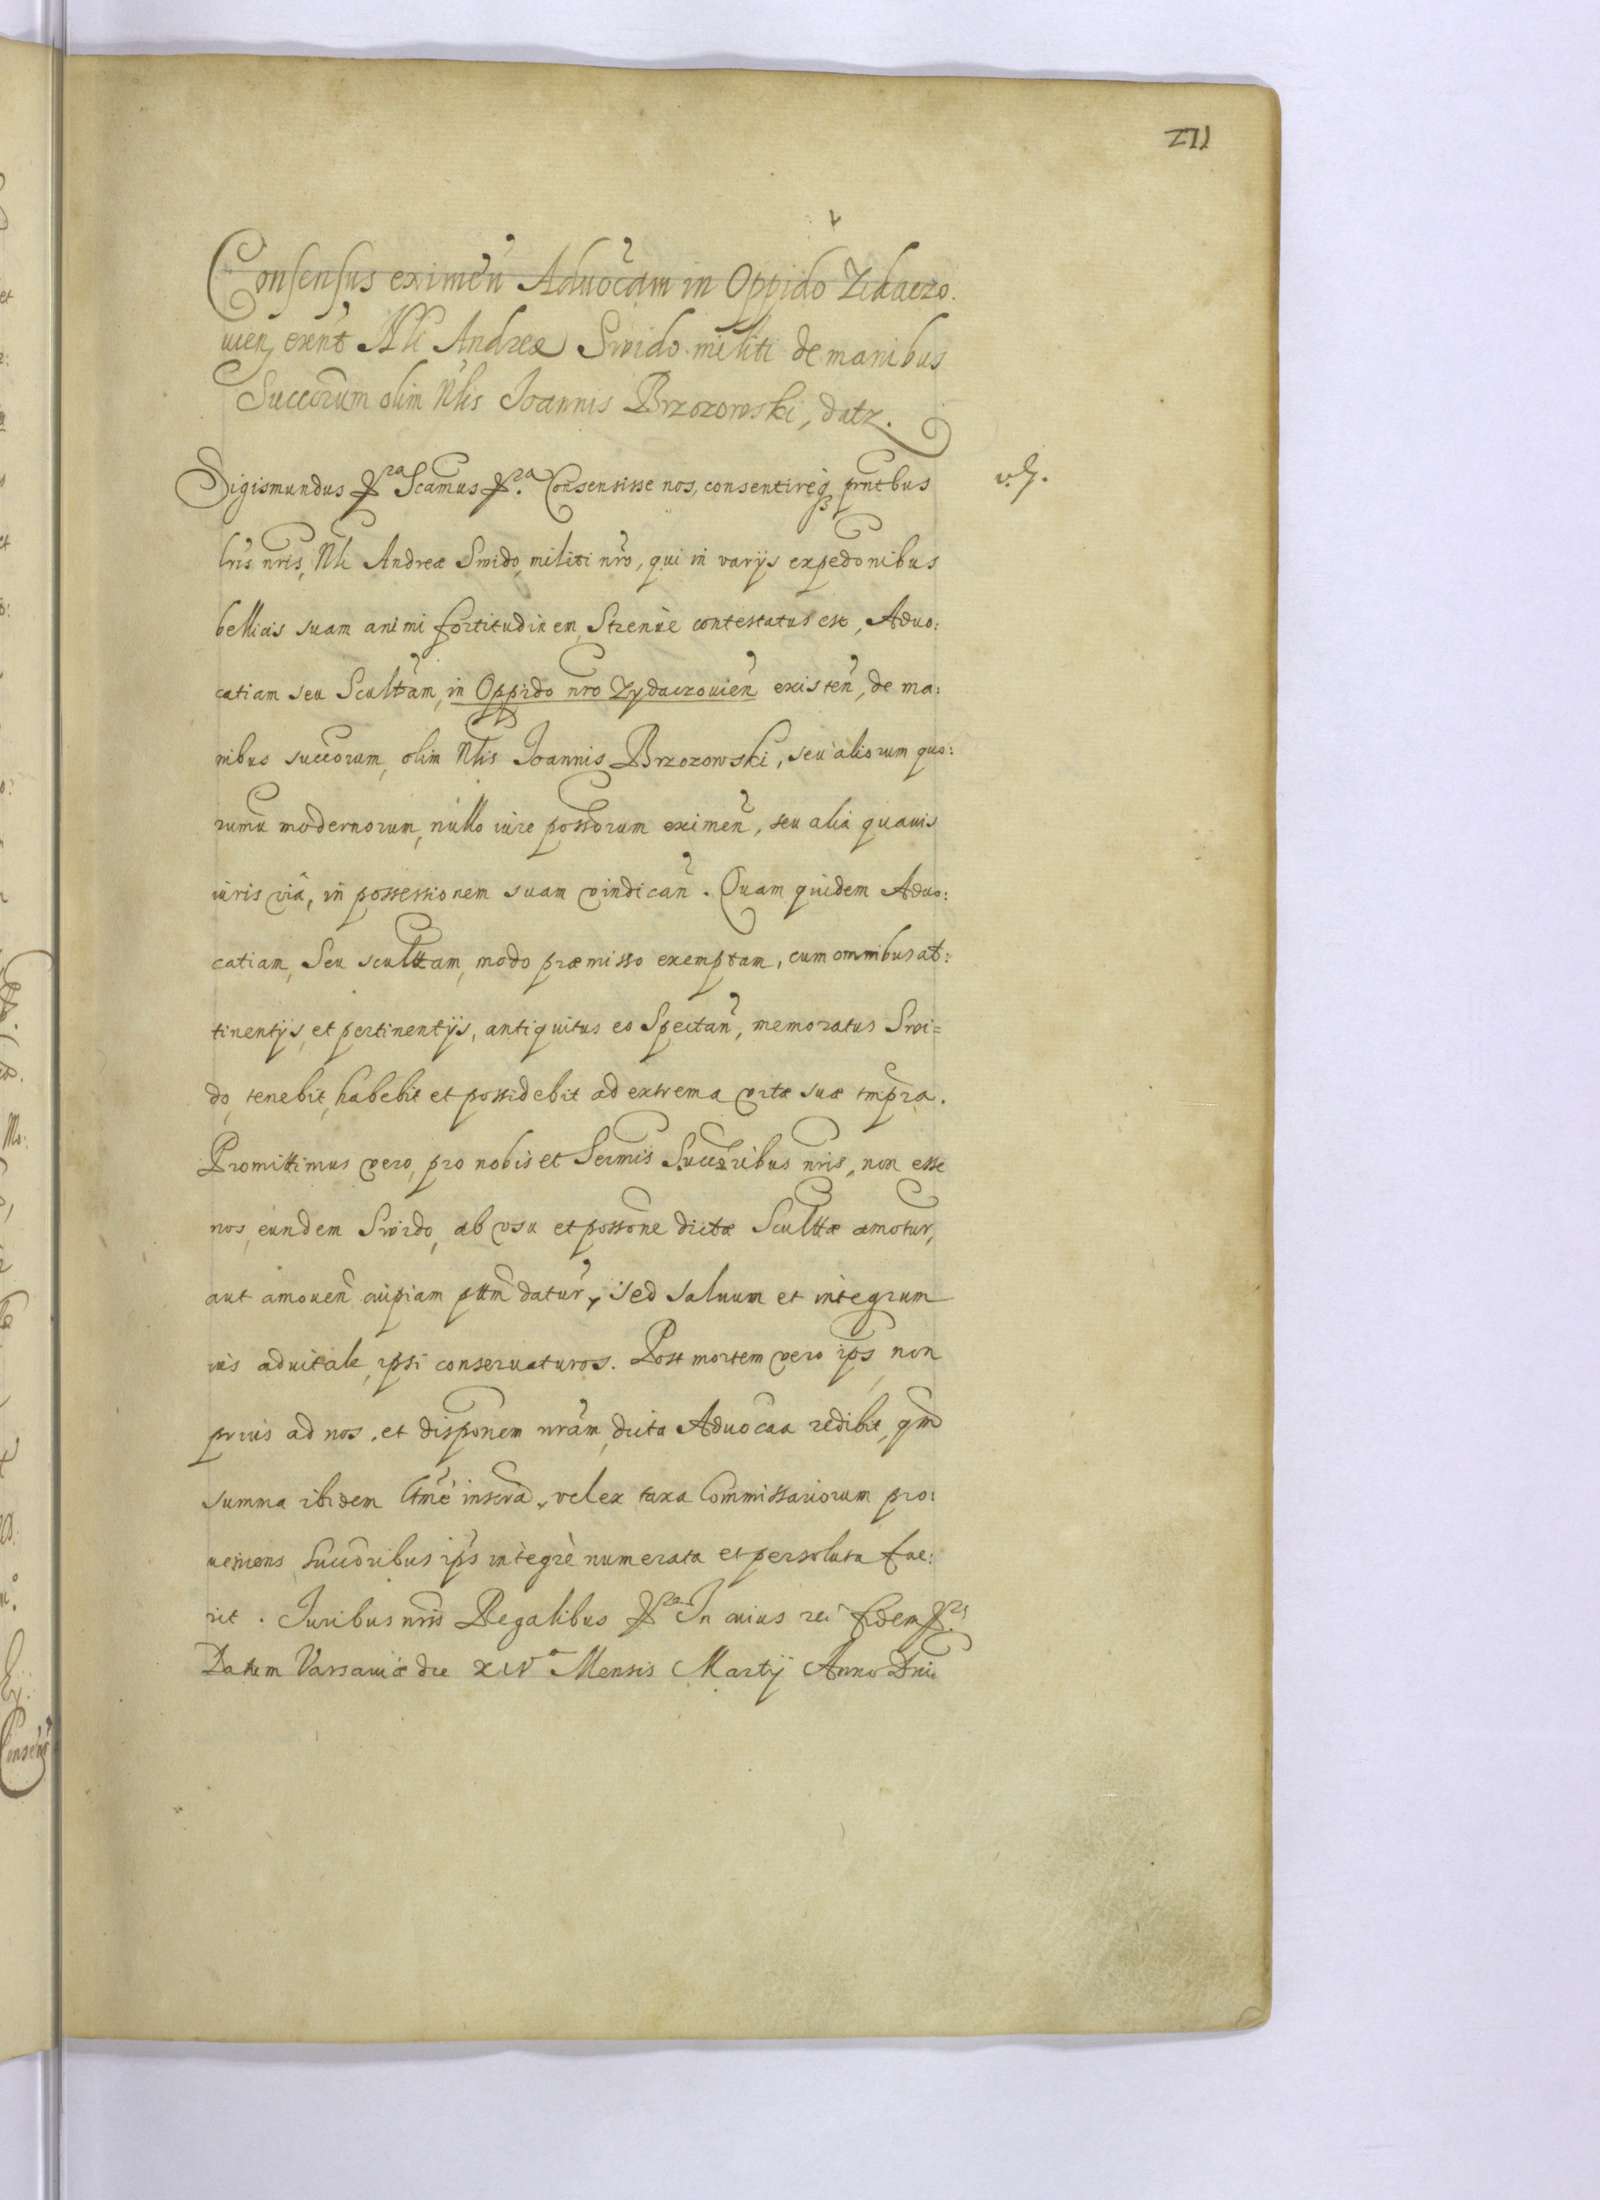 271
Consensus eximen̄ Aduōcam in Oppido Zidaczo.
uien, exēnt Nli Andreæ Swido militi de manibus
Succorum olim Nlis Joannis Brzozowski, datr.
Sigismundus &ra Scamus &ra. Consensisse nos, consentireq prntbus v. g.
lris nris, Nli Andreæ Swido, militi nro, qui in varijs expedonibus
bellicis suam animi fortitudinem, Strenuè contestatus est, Aduo:
catiam seu Scultam, in Oppido nro Zydaczouien̄ existen̄, de ma:
nibus succorum, olim Nlis Joannis Brzozowski, seu aliorum quo:
rumu modernorum, nullo iure possorum eximen̄, seu alia quauis
iuris viâ, in possessionem suam vindican̄. Quam quidem Aduo:
catiam, Seu scultam, modo præmisso exemptam, cum omnibus at:
tinentijs, et pertinentijs, antiquitus eo Spectan̄, memoratus Swi=
do, tenebit, habebit et possidebit ad extrema vitæ suæ tmpra.
Promittimus vero, pro nobis et Sermis Succribus nris, non esse
nos, eundem Swido, ab vsu et possone dictæ Scultæ amotur,
aut amouen̄ cuipiam pttm datur, sed saluum et integrum
ius aduitale, ipsi conseruaturos. Post mortem vero ips, non
prius ad nos, et disponem nram, dicta Aduocaa redibit, qm
summa ibidem ltme inscra, vel ex taxa Commissariorum pro:
ueniens, Succribus ips integrè numerata et persoluta fue:
rit. Juribus nris Regalibus &ra In cuius rei fidem &ra.
Datum Varsauiæ die XIVa Mensis Martij Anno Dni